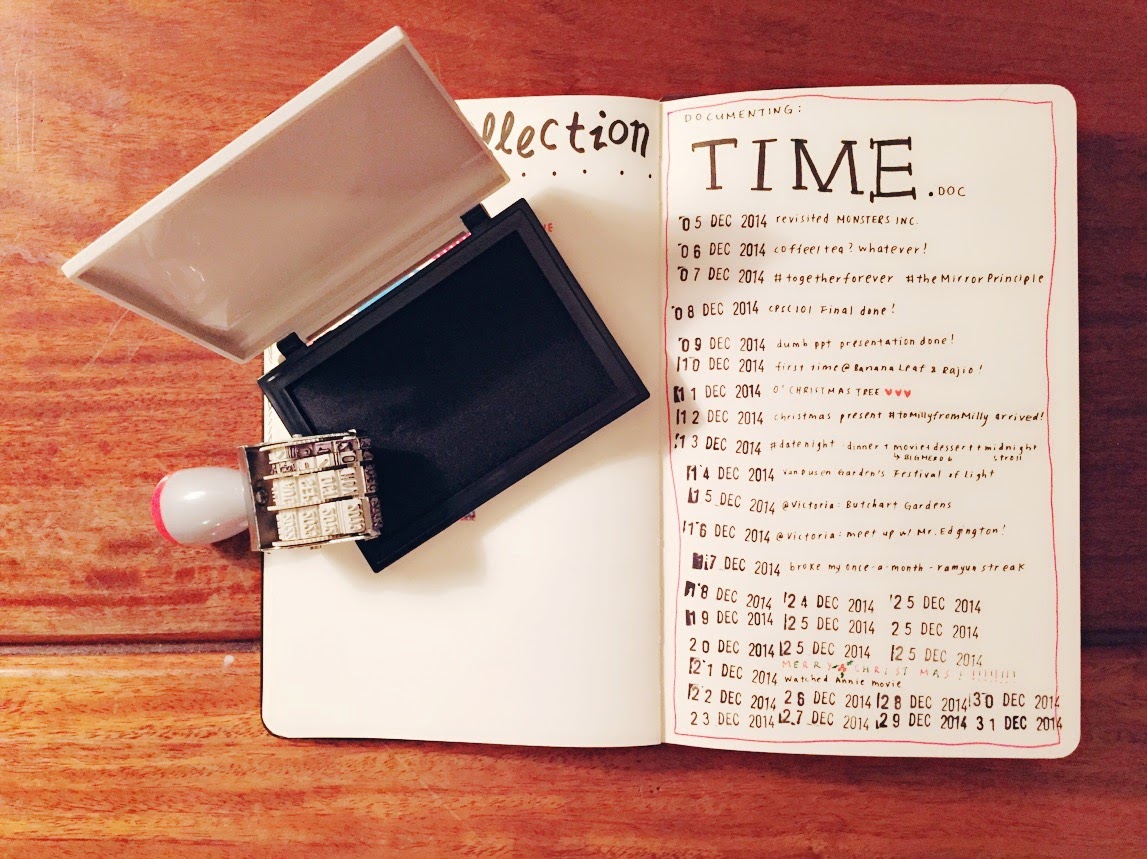 llection
DOCUMENTING:
TIME.DOC
05 DEC 2014 revisited MONSTERS INC.
06 DEC 2014 coffee/tea? whatever!
07 DEC 2014 #togetherforever #theMirrorPrinciple
08 DEC 2014 CPSC101 Final done!
09 DEC 2014 dumb ppt presentation done!
10 DEC 2014 first time @ Banana Leaf & Rajio!
11 DEC 2014 O' CHRISTMAS TREE ♥♥♥
12 DEC 2014 christmas present #toMillyfromMilly arrived!
13 DEC 2014 #datenight: dinner + movie + dessert + midnight
↳ BIG HERO 6 stroll
14 DEC 2014 VanDusen Garden's Festival of Light
15 DEC 2014 @Victoria: Butchart Gardens
16 DEC 2014 @Victoria: meet up w/ Mr. Edgington!
17 DEC 2014 broke my once-a-month-ramyun streak
18 DEC 2014 24 DEC 2014 25 DEC 2014
19 DEC 2014 25 DEC 2014 25 DEC 2014
20 DEC 2014 25 DEC 2014 25 DEC 2014
MERRY CHRISTMAS!!!!!!!!!
21 DEC 2014 watched Annie movie
22 DEC 2014 26 DEC 2014 28 DEC 2014 30 DEC 2014
23 DEC 2014 27 DEC 2014 29 DEC 2014 31 DEC 2014